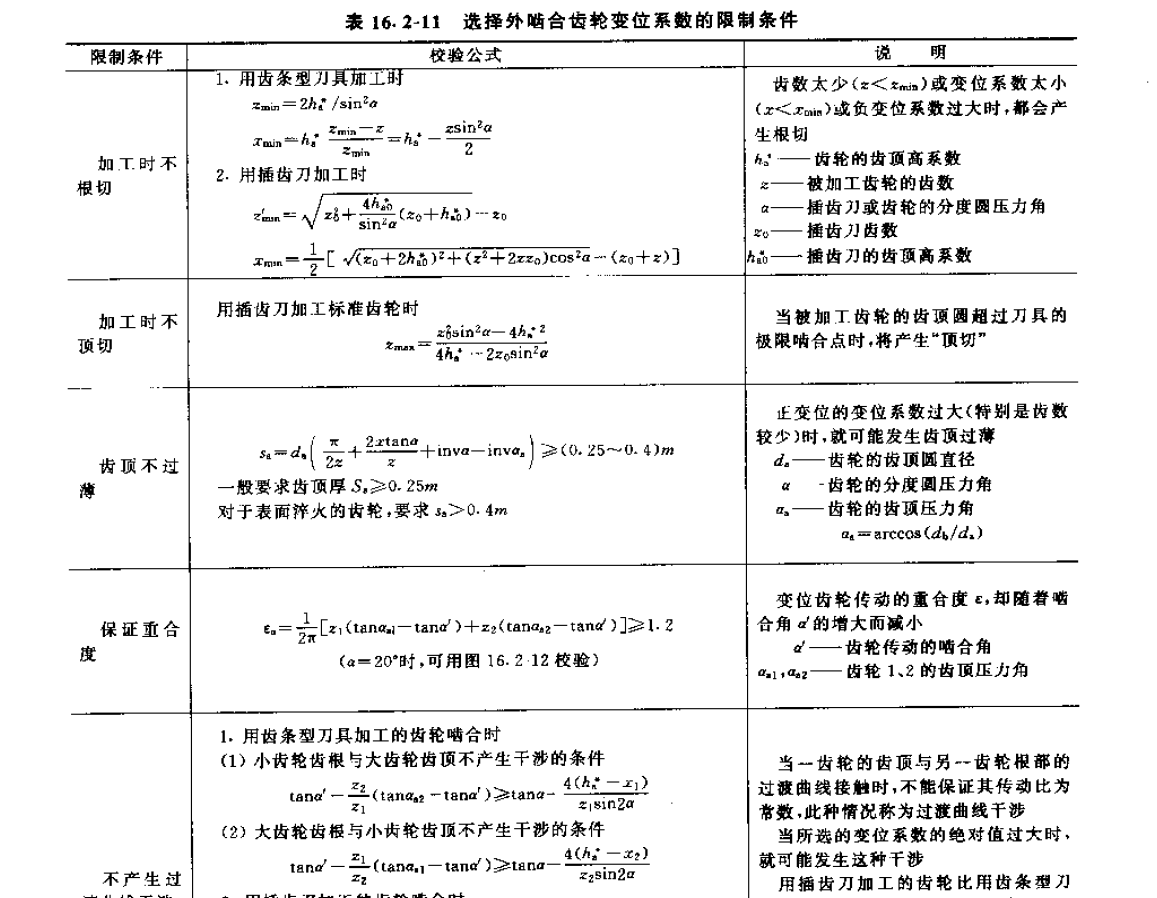 表 16.2-11 选择外啮合齿轮变位系数的限制条件
限制条件
校验公式
说 明
加工时不
根切
1. 用齿条型刀具加工时
zmin=2ha*/sin²α
xmin=ha* (zmin-z)/zmin=ha*-zsin²α/2
2. 用插齿刀加工时
z′min=√(z0²+4ha0*/sin²α(z0+ha0*))-z0
xmin=1/2[√((z0+2ha0*)²+(z²+2zz0)cos²α)-(z0+z)]
齿数太少(z<zmin)或变位系数太小
(x<xmin)或负变位系数过大时,都会产
生根切
ha*——齿轮的齿顶高系数
z——被加工齿轮的齿数
α——插齿刀或齿轮的分度圆压力角
z0——插齿刀齿数
ha0*——插齿刀的齿顶高系数
加工时不
顶切
用插齿刀加工标准齿轮时
zmax=(z0²sin²α-4ha*²)/(4ha*-2z0sin²α)
当被加工齿轮的齿顶圆超过刀具的
极限啮合点时,将产生“顶切”
齿顶不过
薄
sa=da(π/2z+2xtanα/z+invα-invαa)≥(0.25~0.4)m
一般要求齿顶厚 Sa≥0.25m
对于表面淬火的齿轮,要求 sa>0.4m
正变位的变位系数过大(特别是齿数
较少)时,就可能发生齿顶过薄
da——齿轮的齿顶圆直径
α -齿轮的分度圆压力角
αa——齿轮的齿顶压力角
αa=arccos(db/da)
保证重合
度
εα=1/2π[z1(tanαa1-tanα′)+z2(tanαa2-tanα′)]≥1.2
(α=20°时,可用图 16.2-12 校验)
变位齿轮传动的重合度 ε,却随着啮
合角 α′的增大而减小
α′——齿轮传动的啮合角
αa1,αa2——齿轮 1、2 的齿顶压力角
不产生过
1. 用齿条型刀具加工的齿轮啮合时
(1) 小齿轮齿根与大齿轮齿顶不产生干涉的条件
tanα′-z2/z1(tanαa2-tanα′)≥tanα-4(ha*-x1)/z1sin2α
(2) 大齿轮齿根与小齿轮齿顶不产生干涉的条件
tanα′-z1/z2(tanαa1-tanα′)≥tanα-4(ha*-x2)/z2sin2α
当一齿轮的齿顶与另一齿轮根部的
过渡曲线接触时,不能保证其传动比为
常数,此种情况称为过渡曲线干涉
当所选的变位系数的绝对值过大时,
就可能发生这种干涉
用插齿刀加工的齿轮比用齿条型刀